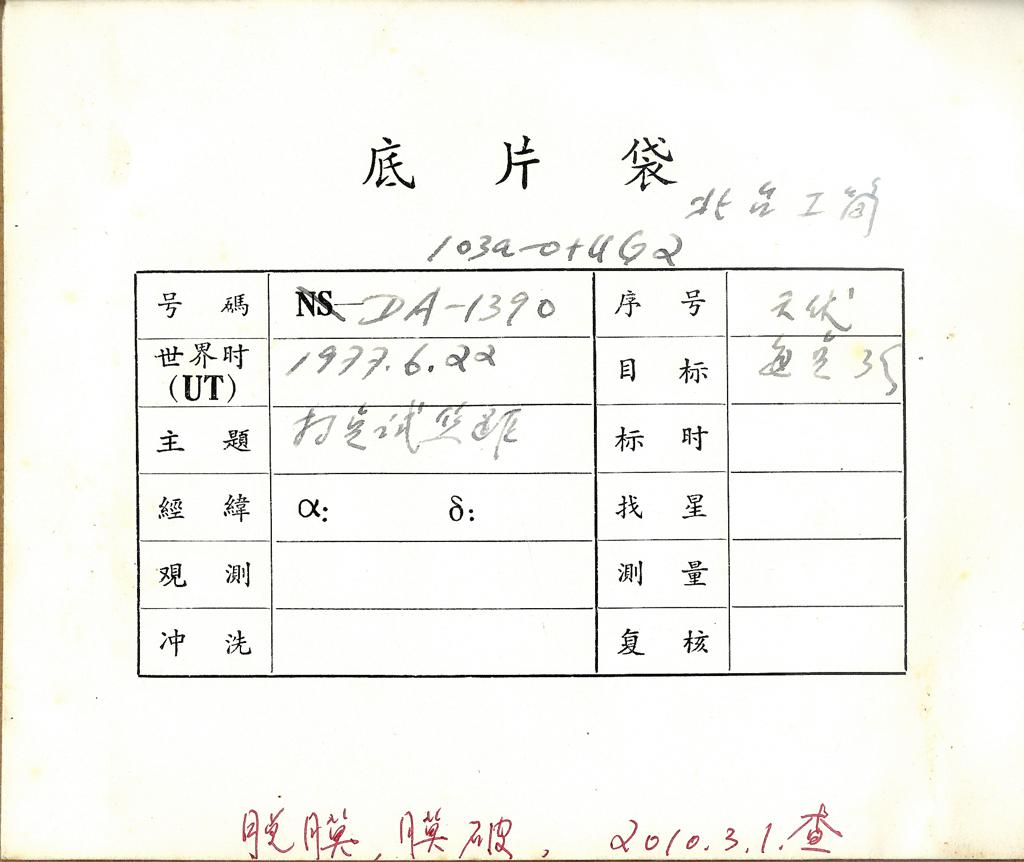 底片袋
北台工简
103a-O+UG2
号碼 NS—DA-1390 序号
世界时(UT) 1977.6.22 目标
主題 标时
經緯 α: δ: 找星
观測 測量
冲洗 复核
脱膜,膜破, 2010.3.1.查